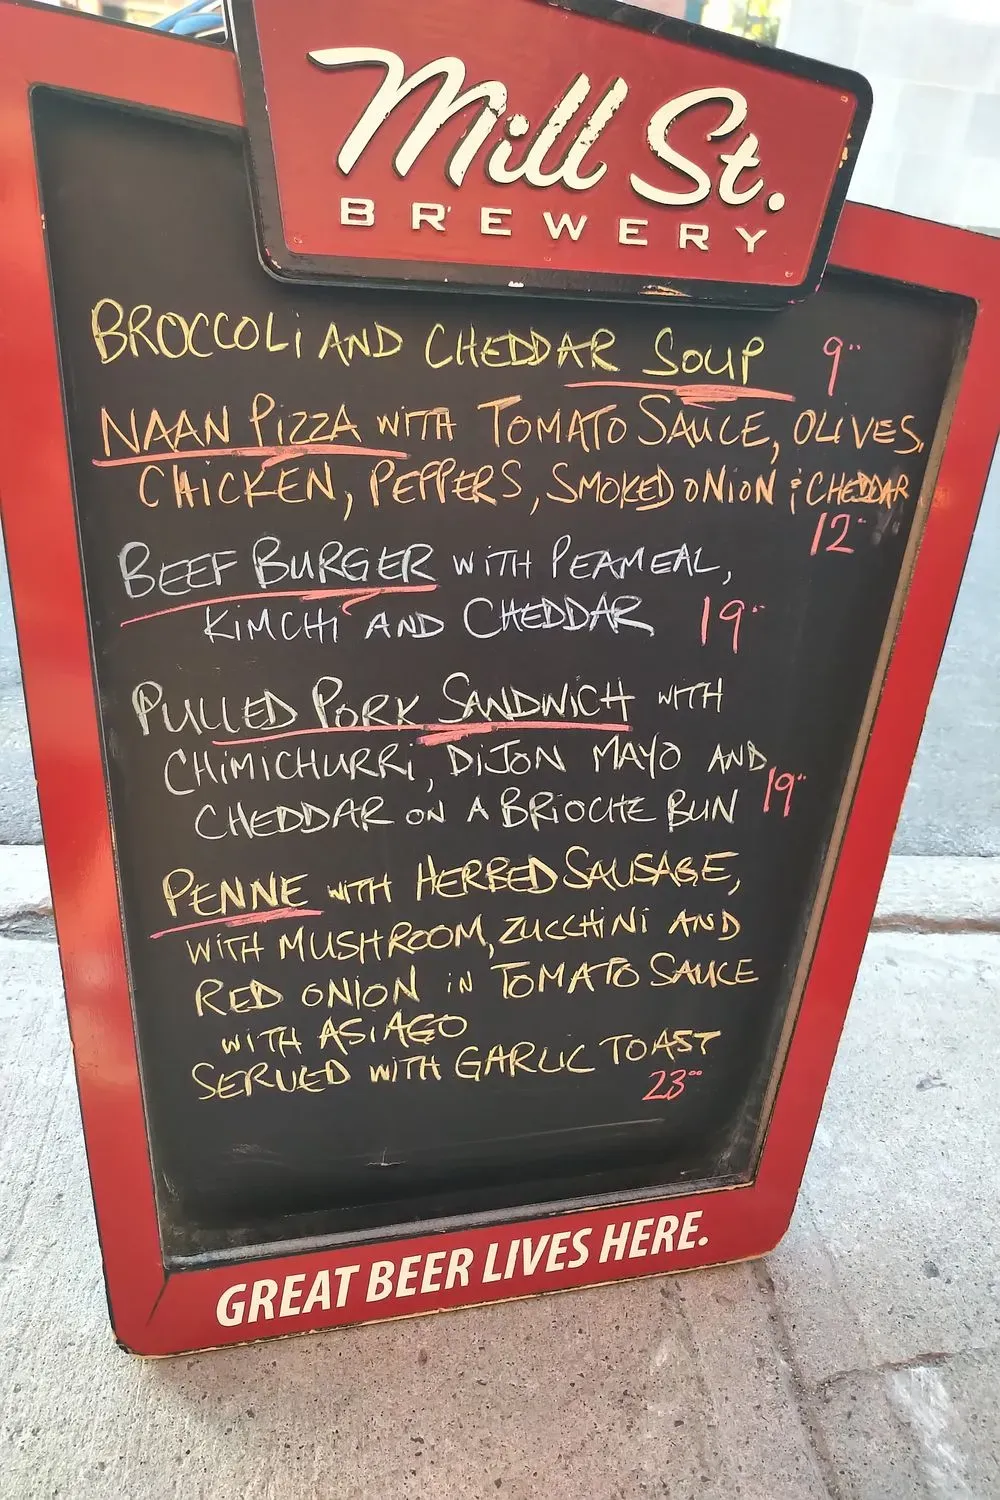 Mill St.
BREWERY
BROCCOLI AND CHEDDAR SOUP 9"
NAAN PIZZA WITH TOMATO SAUCE, OLIVES,
CHICKEN, PEPPERS, SMOKED ONION & CHEDDAR
12"
BEEF BURGER WITH PEAMEAL,
KIMCHI AND CHEDDAR 19"
PULLED PORK SANDWICH WITH
CHIMICHURRI, DIJON MAYO AND
CHEDDAR ON A BRIOCHE BUN 19"
PENNE WITH HERBED SAUSAGE,
WITH MUSHROOM, ZUCCHINI AND
RED ONION IN TOMATO SAUCE
WITH ASIAGO
SERVED WITH GARLIC TOAST
23°°
GREAT BEER LIVES HERE.